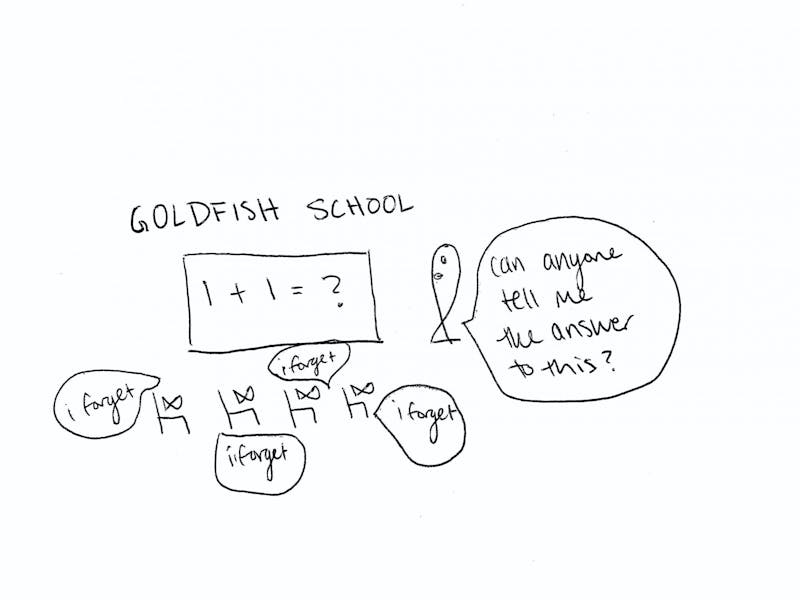 GOLDFISH SCHOOL
1 + 1 = ?
can anyone
tell me
the answer
to this?
i forget
i forget
i forget
i forget